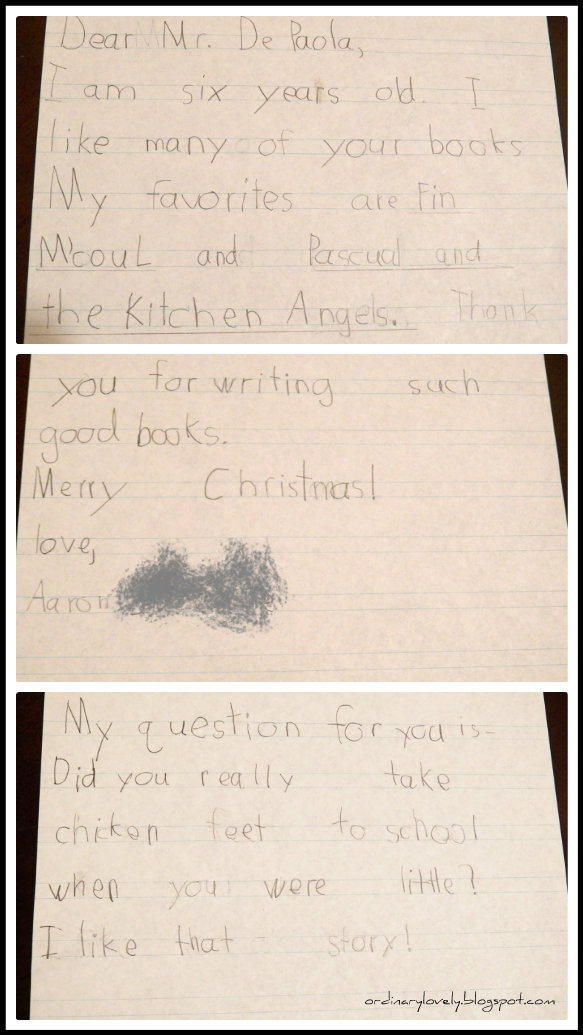 Dear Mr. De Paola,
I am six years old. I
like many of your books
My favorites are Fin
M'couL and Pascual and
the Kitchen Angels. Thank
you for writing such
good books.
Merry Christmas!
love,
Aaron
My question for you is-
Did you really take
chicken feet to school
when you were little?
I like that story!
ordinarylovely.blogspot.com